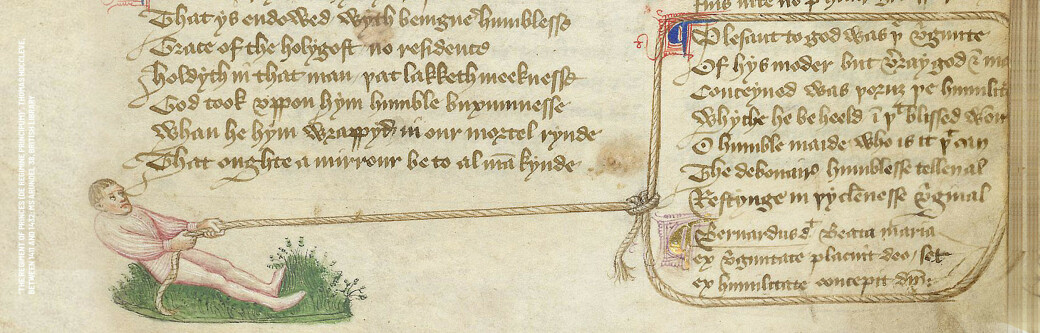 That ys endowed wyth benigne humblesse
Grace of the holy gost no residence
Holdyth in that man þat lakketh meeknesse
God took vppon hym humble buxumnesse
Whan he hym wrappyd in our mortel rynde
That oughte a mirrour be to al mākynde
Plesant to god was þͭ v̛ginite
Of hys moder but v̛ray god &
Conceyued was þoruȝ þe humilit
Whyche he beheeld ī þͭ blissed wom
O humble maide who is it þͭ can
The debonair humblesse tellen al
Restynge in þy clēnesse v̛ginal
Bernardus dͭ Beata maria
ex v̛ginitate placuit deo / set
ex humilitate concepit dm̄
"THE REGIMENT OF PRINCES (DE REGIMINE PRINCIPUM)" THOMAS HOCCLEVE,
BETWEEN 1411 AND 1432, MS ARUNDEL 38, BRITISH LIBRARY